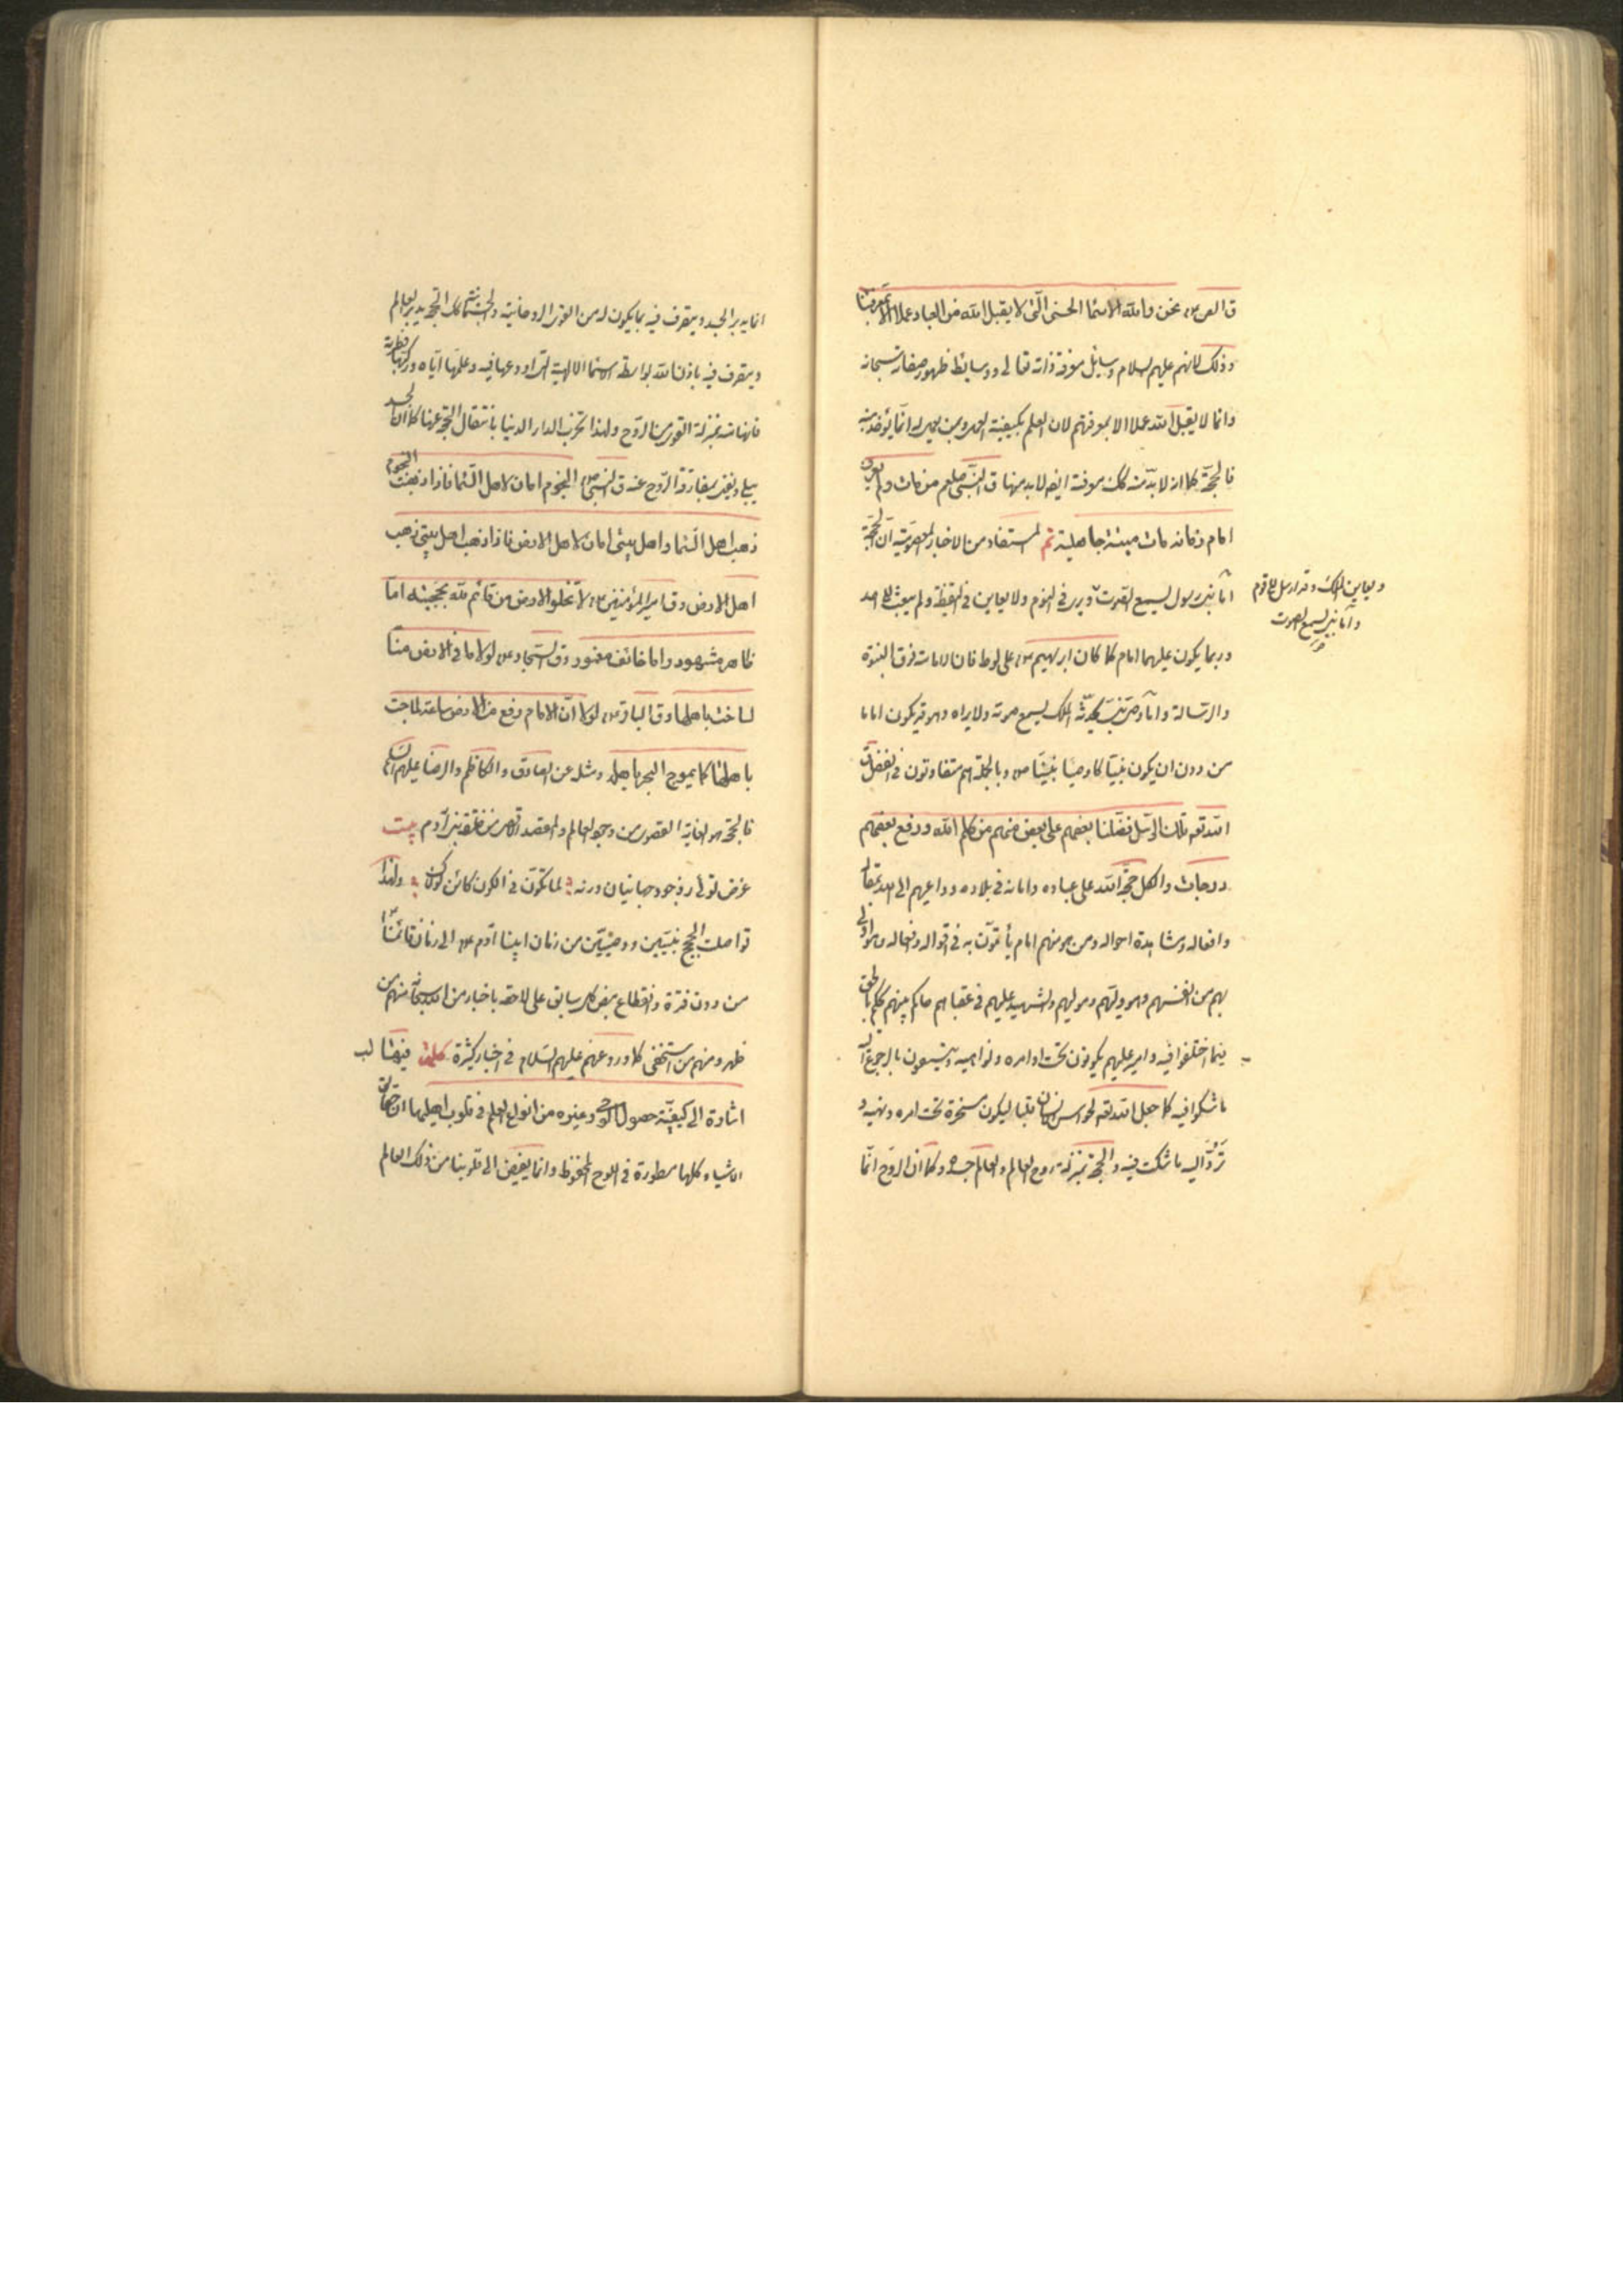 ق الص ع نحن والله الاسما الحسنى التى لا يقبل الله من العباد عملا الا بمعرفتنا
وذلك لانهم عليهم السلام وسايل معرفة ذاته تعالى ووسايط ظهور صفاته سبحانه
وانما لا يقبل الله عملا الا بمعرفتهم لان العلم بكيفية العمل انما يؤخذ منه
فالحجة كما انه لا بد منه كك معرفته ايض لابد منها ق النبى صلعم من مات ولم يعرف
امام زمانه مات ميتة جاهلية ثم المستفاد من الاخبار المعصومية ان الحجة
اما نبى رسول يسمع الصوت ويرى فى النوم ولا يعاين فى اليقظة ولم يبعث الى احد
ويعاين الملك وقد ارسل الى قوم
واما نبى يسمع الصوت
وربما يكون عليهما امام كما كان ابرهيم ع على لوط فان الامامة فوق النبوة
والرسالة واما وصى نبى يحدثه الملك يسمع صوته ولا يراه وهو قد يكون اماما
من دون ان يكون نبيا كاوصيا نبينا ص وبالجملة هم متفاوتون فى الفضل ق
الله تعه تلك الرسل فضلنا بعضهم على بعض منهم من كلم الله ورفع بعضهم
درجات والكل حجج الله على عباده وامانه فى بلاده وداعيهم الى الله بمقاله
وافعاله ومشاهدة احواله ومن هو منهم امام يأتمون به فى اقواله وفعاله وهو اولى
بهم من انفسهم وهو وليهم ومولیهم والشهيد عليهم فى عقباهم حاكم بينهم يحكم بالحق
فيما اختلفوا فيه وامير عليهم يكونون تحت اوامره ونواهيه ويتسعون بالرجوع اليه
ما شكوا فيه كما جعل الله تعه لحواس الانسان قلبا ليكون مسخرة تحت امره ونهيه و
تردّ اليه ما شكت فيه والحجة بمنزلة روح العالم والعالم جسده وكما ان الروح انما
انما يدبر الجسد ويتصرف فيه بما يكون له من القوى الروحانية والجسمانية كك الحجة يدبر العالم
ويتصرف فيه باذن الله بواسطة الاسما الالهية التى اودعها فيه وعلمها اياه وركبها فطرته
فانها منه بمنزلة القوى من الروح ولهذا تخرب الدار الدنيا بانتقال الحجة عنها كما ان الجسد
يبلى ويفنى بمفارقة الروح عنه ق النبى ص النجوم امان لاهل السّما فاذا ذهبت النجوم
ذهب اهل السّما واهل بيتى امان لاهل الارض فاذا ذهب اهل بيتى ذهب
اهل الارض وق امير المؤمنين ع لا تخلو الارض من قائم لله بحججه اما
ظاهر مشهور واما خائف مغمور وق السجاد ع لولا ما فى الارض منا
لساخت باهلها وق الباقر ع لو ان الامام رفع من الارض ساعة لماجت
باهلها كما يموج البحر باهله ومثله عن الصادق والكاظم والرضا عليهم السلام
فالحجة هو الغاية القصوى من وجود العالم والمقصد الاقصى من خلقة بنى آدم بيت
غرض توئى ز وجود جهانيان ورنه لما تكوّن فى الكون كائن لولاك ولهذا
تواصلت الحجج نبيين ووصيين من زمان ابينا آدم ع الى زمان قائمنا ع
من دون فترة وانقطاع بنص كل سابق على لاحقه باخبار من الله سبحانه منهم من
ظهر ومنهم من استخفى كما ورد عنهم عليهم السّلام فى اخبار كثيرة كلمة فيهتا لب
اشارة الى كيفية حصول الوحى وغيره من انواع العلم فى قلوب اهليها ان حقايق
الاشياء كلها مسطورة فى اللوح المحفوظ وانما يفيض الى قلوبنا من ذلك العالم